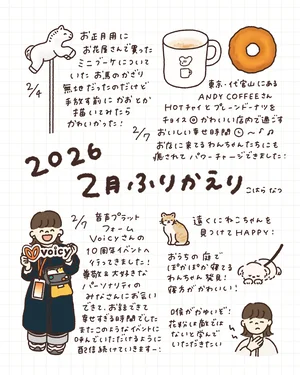 お正月用に
お花屋さんで買った
ミニブーケについて
いたお馬のかざり
無地だったのだけど
手放す前にかおとか
描いてみたら
かわいかった!
2/4
東京・代官山にある
ANDY COFFEEさん
HOTチャイとプレーンドーナツを
チョイス かわいい店内で過ごす
おいしい幸せ時間
お店に来てるわんちゃんたちにも
癒されてパワーチャージできました!
2/7
2026
2月ふりかえり
こはらなつ
2/7
音声プラット
フォーム
Voicyさんの
10周年イベントへ
行ってきました!
尊敬&大好きな
パーソナリティの
みなさんにお会い
できて、お話できて
幸せすぎる時間でした
またこのようなイベントに
呼んでいただけるように
配信続けていきますー!
voicy
遠くにねこちゃんを
見つけてHAPPY!
おうちの庭で
ぽかぽか寝てる
わんちゃん発見!
寝方がかわいい!
花粉は敵では
ないと学んで
いただきたい